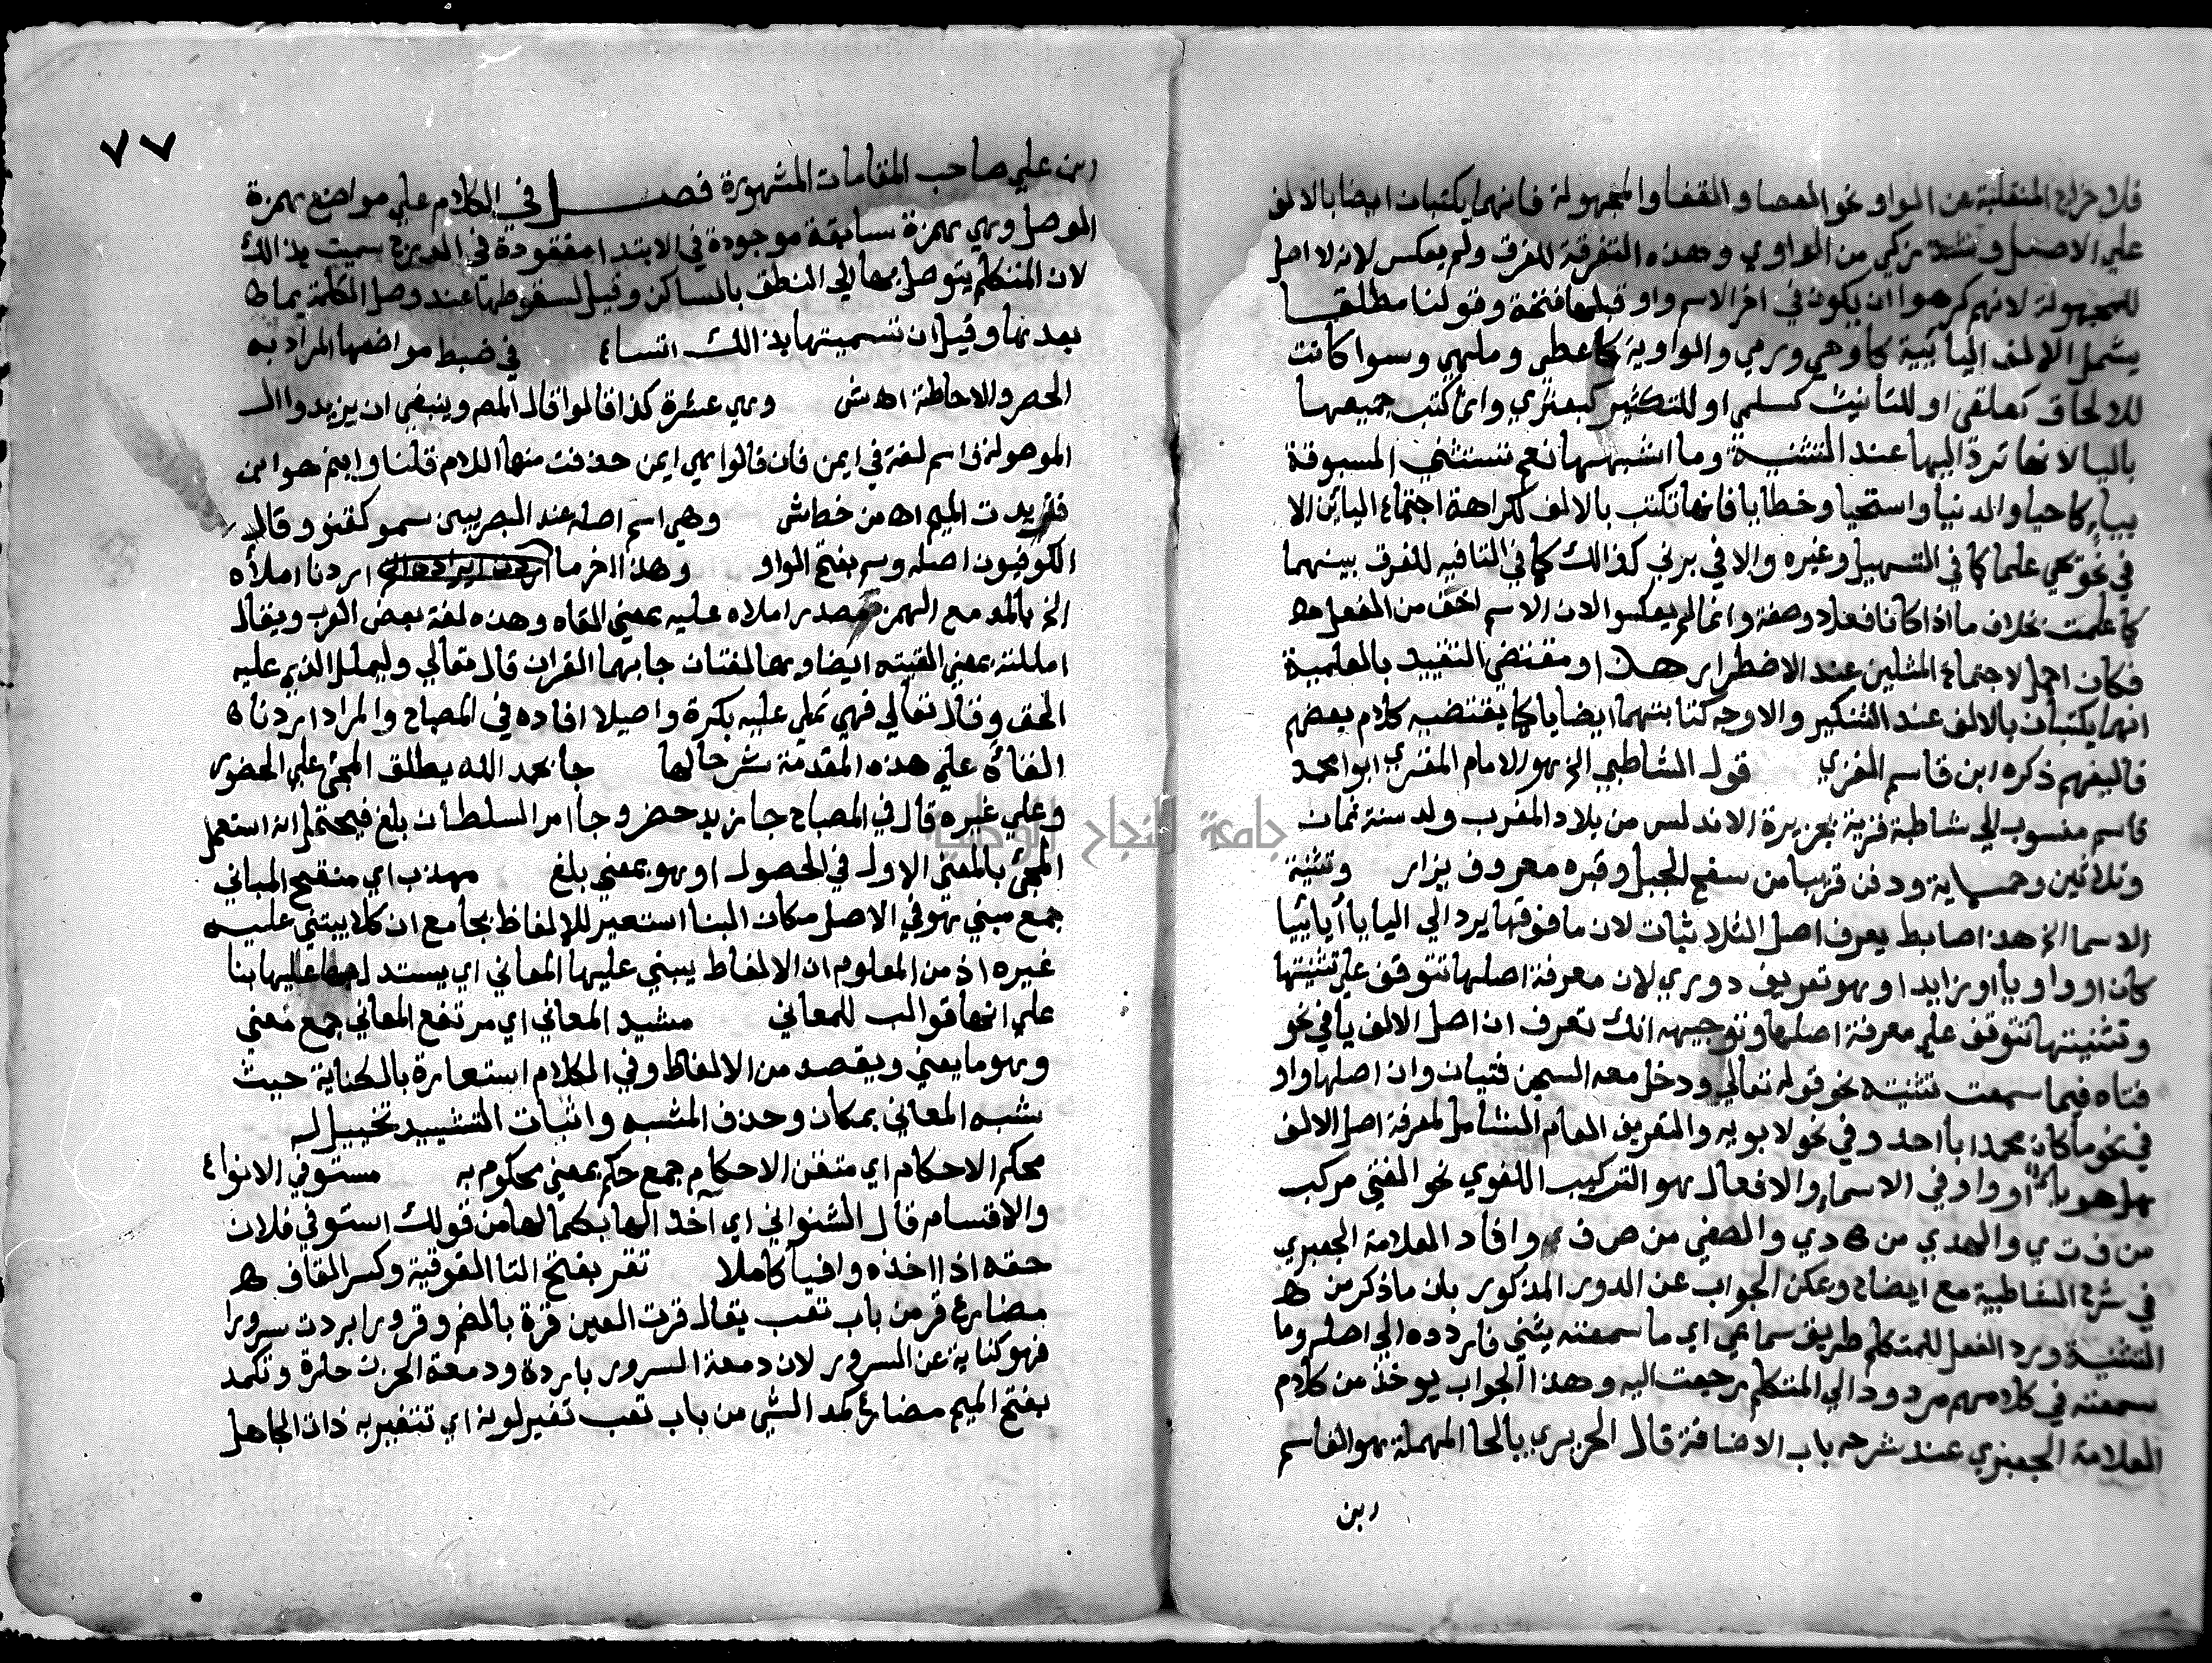 فلاخراج المنقلبة عن الواو نحو العصا والقفا والمجهولة فانهما يكتبان ايضا بالالف
علي الاصل وشذ زكي من الواوي وهذه التفرقة للفرق ولم يعكس لانه لا اصل
للمجهولة لانهم كرهوا ان يكون في اخر الاسم واو قبلها فتحة وقولنا مطلقا
يشمل الالف اليائية كاوحي ورمي والواوية كاعطي وملهي وسوا كانت
للالحاق كعلقي او للتانيث كسلمي او للتكثير كبعثري وانما كتب جميعها
باليا لانها ترد اليها عند التثنية وما اشبهها نعم تستثني المسبوقة
بياء كاحيا والدنيا واستحيا وخطايا فانها تكتب بالالف لكراهة اجتماع اليائين الا
في نحو يحي علما كما في التسهيل وغيره والا في برني كذالك كما في الشافيه للفرق بينهما
كما علمت بخلاف ما اذا كانا فعلا وصفة وانما لم يعكسوا لان الاسم اخف من الفعل ه
فكان احمل لاجتماع المثلين عند الاضطرار هذا ومقتضي التقييد بالعلمية
انهما يكتبان بالالف عند التنكير والاوجه كتابتهما ايضا يا كما يقتضيه كلام بعضهم
فاليفهم ذكره ابن قاسم الغزي قوله الشاطبي الخ هو الامام المقري ابوا محمد
قاسم منسوب الي شاطبة قرية بجزيرة الاندلس من بلاد المغرب ولد سنة ثمان
وثلاثين وخمسماية ودفن قريبا من سفح الجبل وقبره معروف يزار وتثنية
الاسما الخ هذا ضابط يعرف اصل الثلاثيات لان ما فوقها يرد الي اليا يا أيائيا
كان او واويا او زايدا وهو تعريف دوري لان معرفة اصلها تتوقف علي تثنيتها
وتثنيتها تتوقف علي معرفة اصلها وتوجيهه انك تعرف ان اصل الالف يا في نحو
فتاه فيما سمعت تثنيته نحو قوله تعالي ودخل معه السجن فتيان وان اصلها واو
في نحو ما كان محمد ابا احد وفي نحو لابويه والتعريف العام الشامل لمعرفة اصل الالف
هل هو ياء او واو في الاسماء والافعال هو التركيب اللغوي نحو الفتي مركب
من ف ت ي والهدي من ه د ي والصفي من ص ف ي وافاد العلامة الجعبري
في شرح الشاطبية مع ايضاح ويمكن الجواب عن الدور المذكور بان ما ذكر من ه
التثنية ورد الفعل للمتكلم طريق سماعي اي ما سمعته يثني فاردده الي اصله وما
سمعته في كلامهم مردود الي المتكلم رجعت اليه وهذا الجواب يوخذ من كلام
العلامة الجعبري عند شرحه باب الاضافة قال الحريري بالحا المهملة هو القاسم
ابن
٧٧
ابن علي صاحب المقامات المشهورة فصل في الكلام علي مواضع همزة
الوصل وهي همزة سابقة موجودة في الابتدا مفقودة في الدرج سميت بذالك
لان المتكلم يتوصل بها الي النطق بالساكن وقيل لسقوطها عند وصل الكلمة بما ه
بعدها وقيل ان تسميتها بذالك اتساع في ضبط مواضعها المراد به
الحصر والاحاطة اه ش وهي عشرة كذا قالوا قال المص وينبغي ان يزيدوا ال
الموصولة واسم لغة في ايمن فان قالوا هي ايمن حذفت منها اللام قلنا وابنم هو ابن
فزيدت الميم اه من خط ش وهي اسم اصله عند البصريين سمو كقنو وقال
الكوفيون اصله وسم بفتح الواو وهذا اخر ما اردنا املأه
الخ بالمد مع الهمز مصدر املاه عليه بمعني القاه وهذه لغة بعض العرب ويقال
امللته بمعني القيته ايضا وهما لغتان جا بهما القران قال تعالي وليملل الذي عليه
الحق وقال تعالي فهي تملي عليه بكرة واصيلا افاده في المصباح والمراد اردنا ه
القاه علي هذه المقدمة شرحا لها جا بحمد الله يطلق المجئ علي الحضور
وعلي غيره قال في المصباح جا زيد حضر وجا امر السلطان بلغ فيحتمل انه استعمل
المجئ بالمعني الاول في الحصول او هو بمعني بلغ مهذب اي منقح المباني
جمع مبني هو في الاصل مكان البنا استعير للالفاظ بجامع ان كلا يبتني عليه
غيره اذ من المعلوم ان الالفاظ يبني عليها المعاني اي يستدل بها عليها بنا
علي انها قوالب للمعاني مشيد المعاني اي مرتفع المعاني جمع معني
وهو ما يعني ويقصد من الالفاظ وفي الكلام استعارة بالكناية حيث
شبه المعاني بمكان وحذف المشبه واثبات التشييد تخييل له
محكم الاحكام اي متقن الاحكام جمع حكم بمعني محكوم به مستوفي الانواع
والاقسام قال الشنواني اي آخذ الها بكمالها من قولك استوفي فلان
حقه اذا اخذه وافيا كاملا تقر بفتح التا الفوقية وكسر القاف ه
مضارع قر من باب تعب يقال قرت العين قرة بالضم وقرورا بردت سرورا
فهو كناية عن السرور لان دمعة السرور باردة ودمعة الحزن حارة وتكمد
بفتح الميم مضارع كمد الشي من باب تعب تغير لونه اي تتغير به ذات الجاهل
جامعة النجاح الوطنية